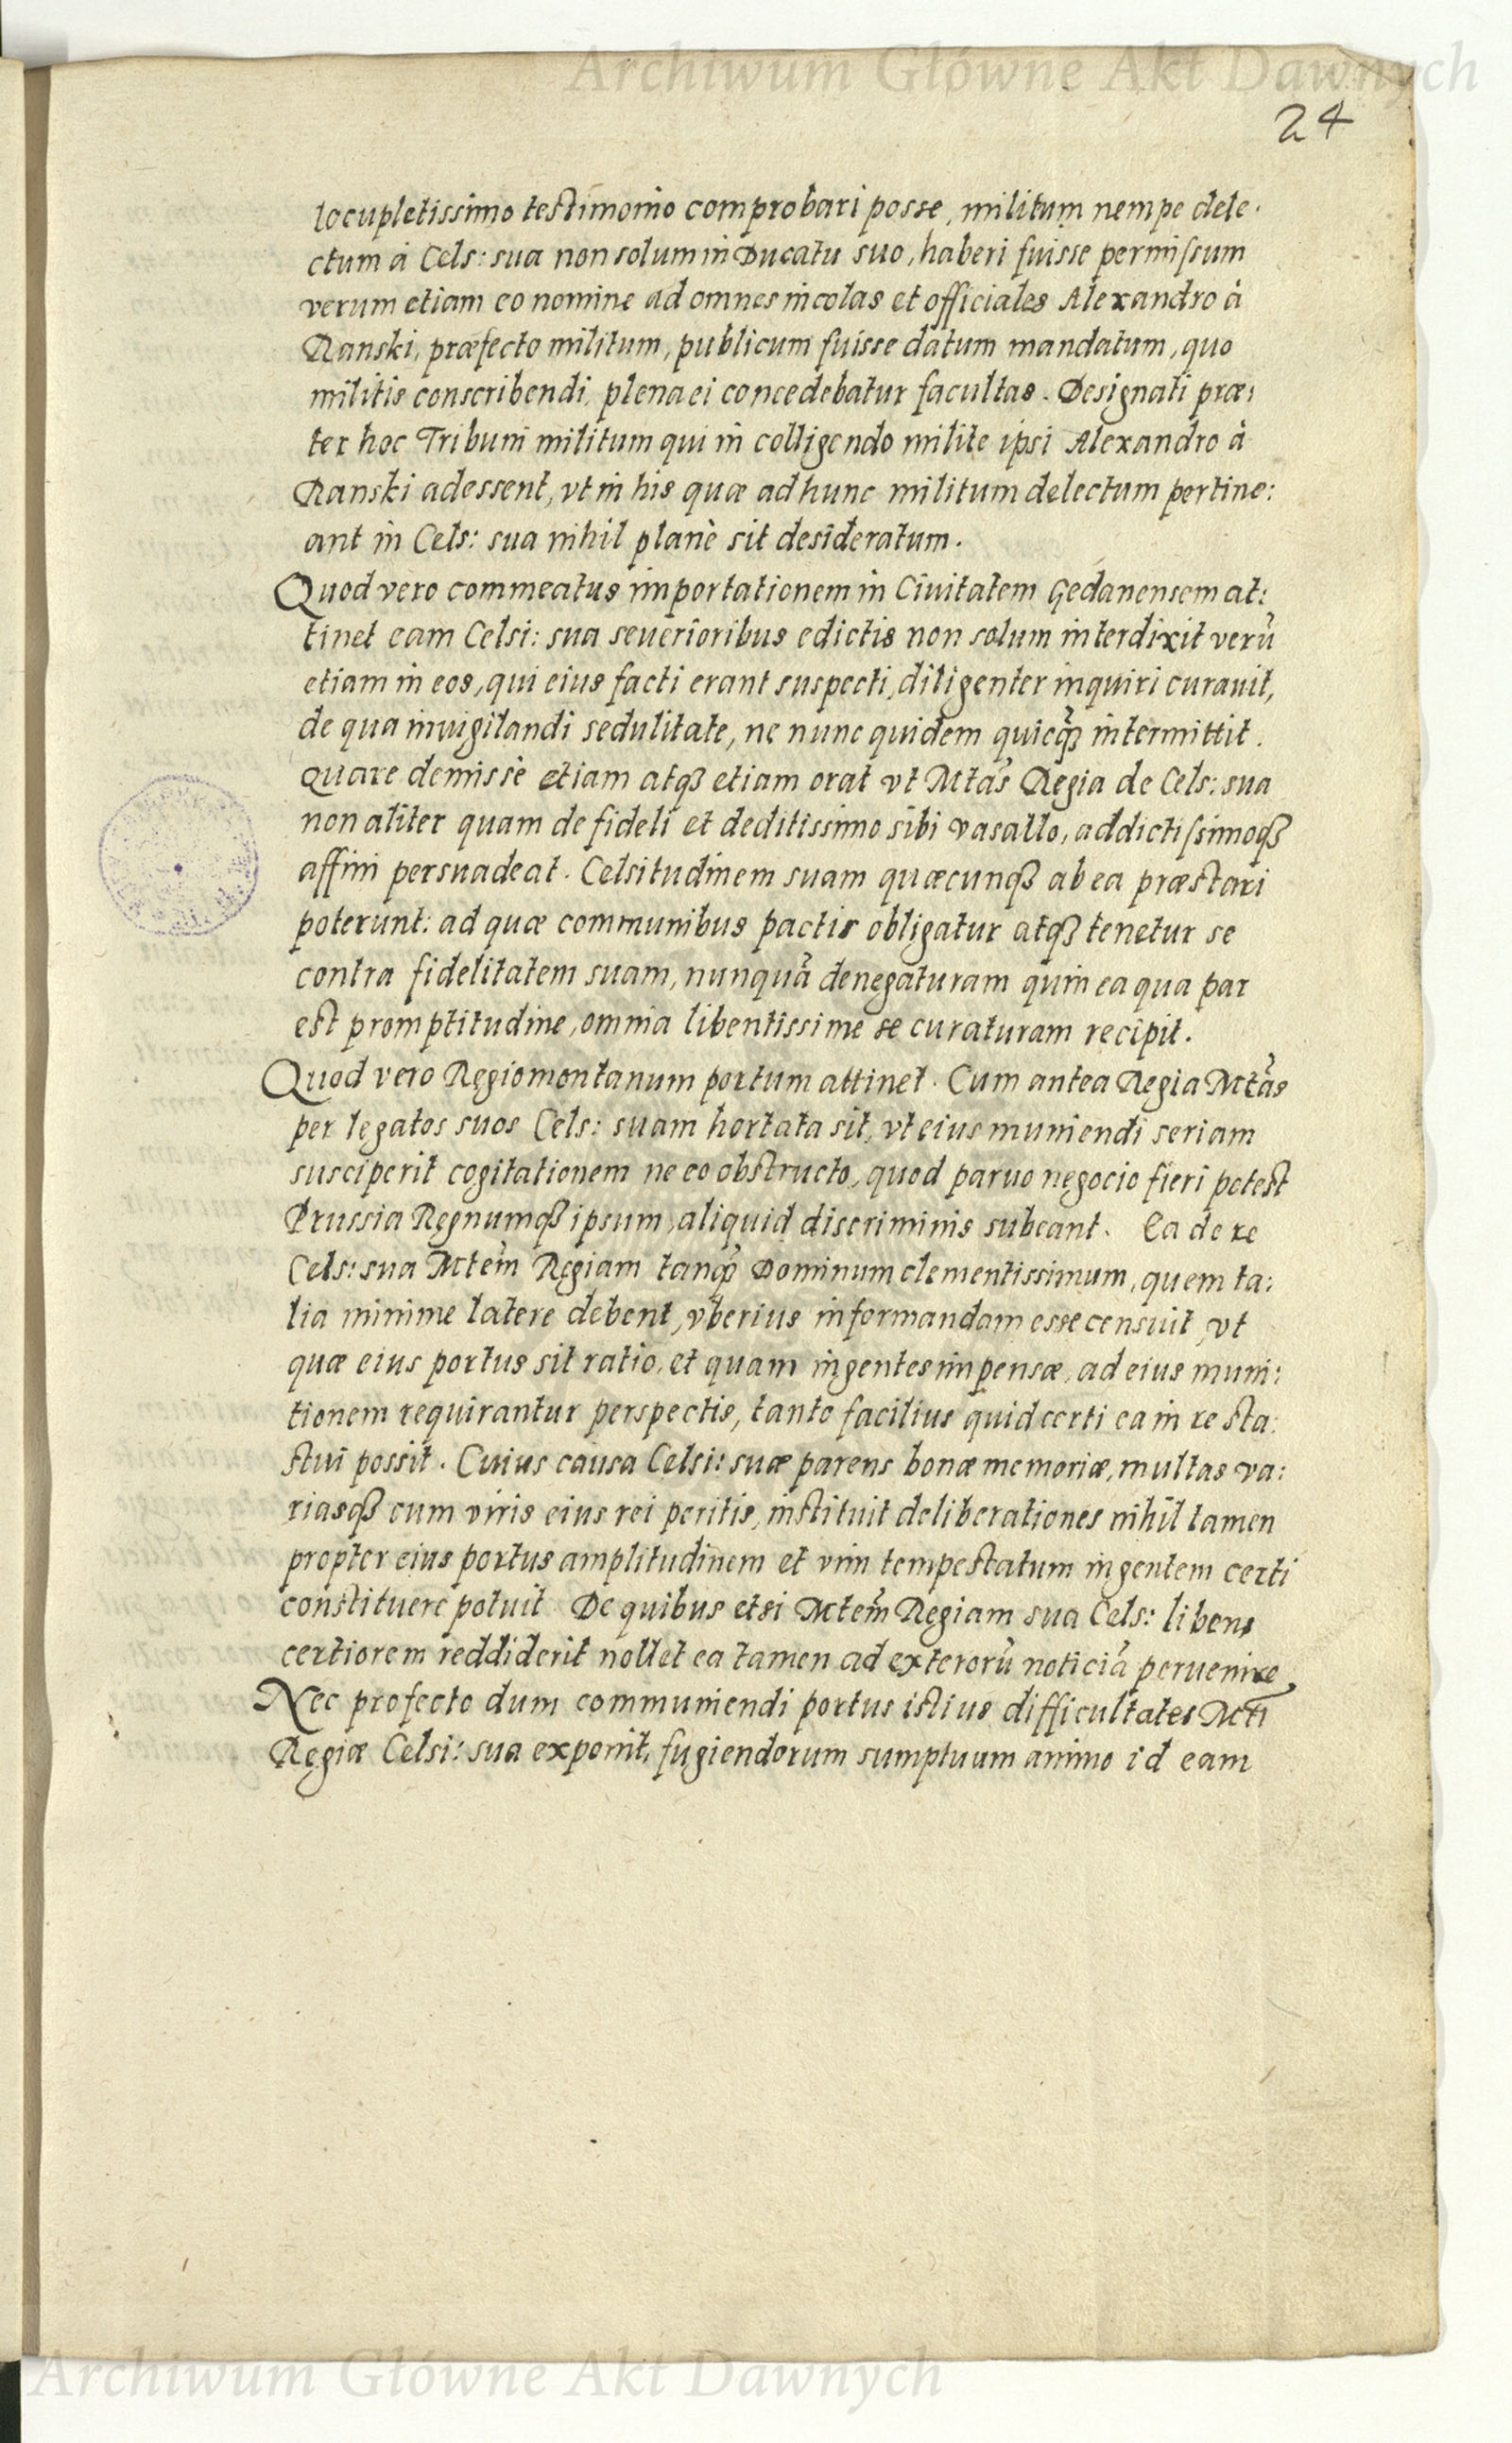 Archiwum Główne Akt Dawnych
24
locupletissimo testimonio comprobari posse, militum nempe dele:
ctum à Cels: sua non solum in Ducatu suo, haberi fuisse permissum
verum etiam eo nomine ad omnes incolas et officiales Alexandro à
Ranski, præfecto militum, publicum fuisse datum mandatum, quo
militis conscribendi, plena ei concedebatur facultas. Designati præ:
ter hoc Tribuni militum qui in colligendo milite ipsi Alexandro à
Ranski adessent, vt in his quæ ad hunc militum delectum pertine:
ant in Cels: sua nihil planè sit desideratum.
Quod vero commeatus importationem in Ciuitatem Gedanensem at:
tinet eam Celsi: sua seuerioribus edictis non solum interdixit verũ
etiam in eos, qui eius facti erant suspecti, diligenter inquiri curauit,
de qua inuigilandi sedulitate, ne nunc quidem quicq̃ intermittit.
Quare demissè etiam atq3 etiam orat vt Mtãs Regia de Cels: sua
non aliter quam de fideli et deditissimo sibi vasallo, addictissimoq3
affini persuadeat. Celsitudinem suam quæcunq3 ab ea præstari
poterunt: ad quæ communibus pactis obligatur atq3 tenetur se
contra fidelitatem suam, nunquã denegaturam quin ea qua par
est promptitudine, omnia libentissime se curaturam recipit.
Quod vero Regiomontanum portum attinet. Cum antea Regia Mtãs
per legatos suos Cels: suam hortata sit, vt eius muniendi seriam
susciperit cogitationem ne eo obstructo, quod paruo negocio fieri potest
Prussia Regnumq3 ipsum, aliquid discriminis subeant. Ea de re
Cels: sua Mtem̃ Regiam tanq̃ Dominum clementissimum, quem ta:
lia minime latere debent, vberius informandam esse censuit, vt
quæ eius portus sit ratio, et quam ingentes impensæ, ad eius muni:
tionem requirantur perspectis, tanto facilius quid certi ea in re sta:
stui possit. Cuius causa Celsi: suæ parens bonæ memoriæ, multas va:
riasq3 cum viris eius rei peritis, instituit deliberationes nihil tamen
propter eius portus amplitudinem et vim tempestatum ingentem certi
constituere potuit De quibus etsi Mtem̃ Regiam sua Cels: libens
certiorem reddiderit nollet ea tamen ad exterorũ noticiã peruenire
Nec profecto dum communiendi portus istius difficultates Mtĩ
Regiæ Celsi: sua exponit, fugiendorum sumptuum animo id eam
Archiwum Główne Akt Dawnych